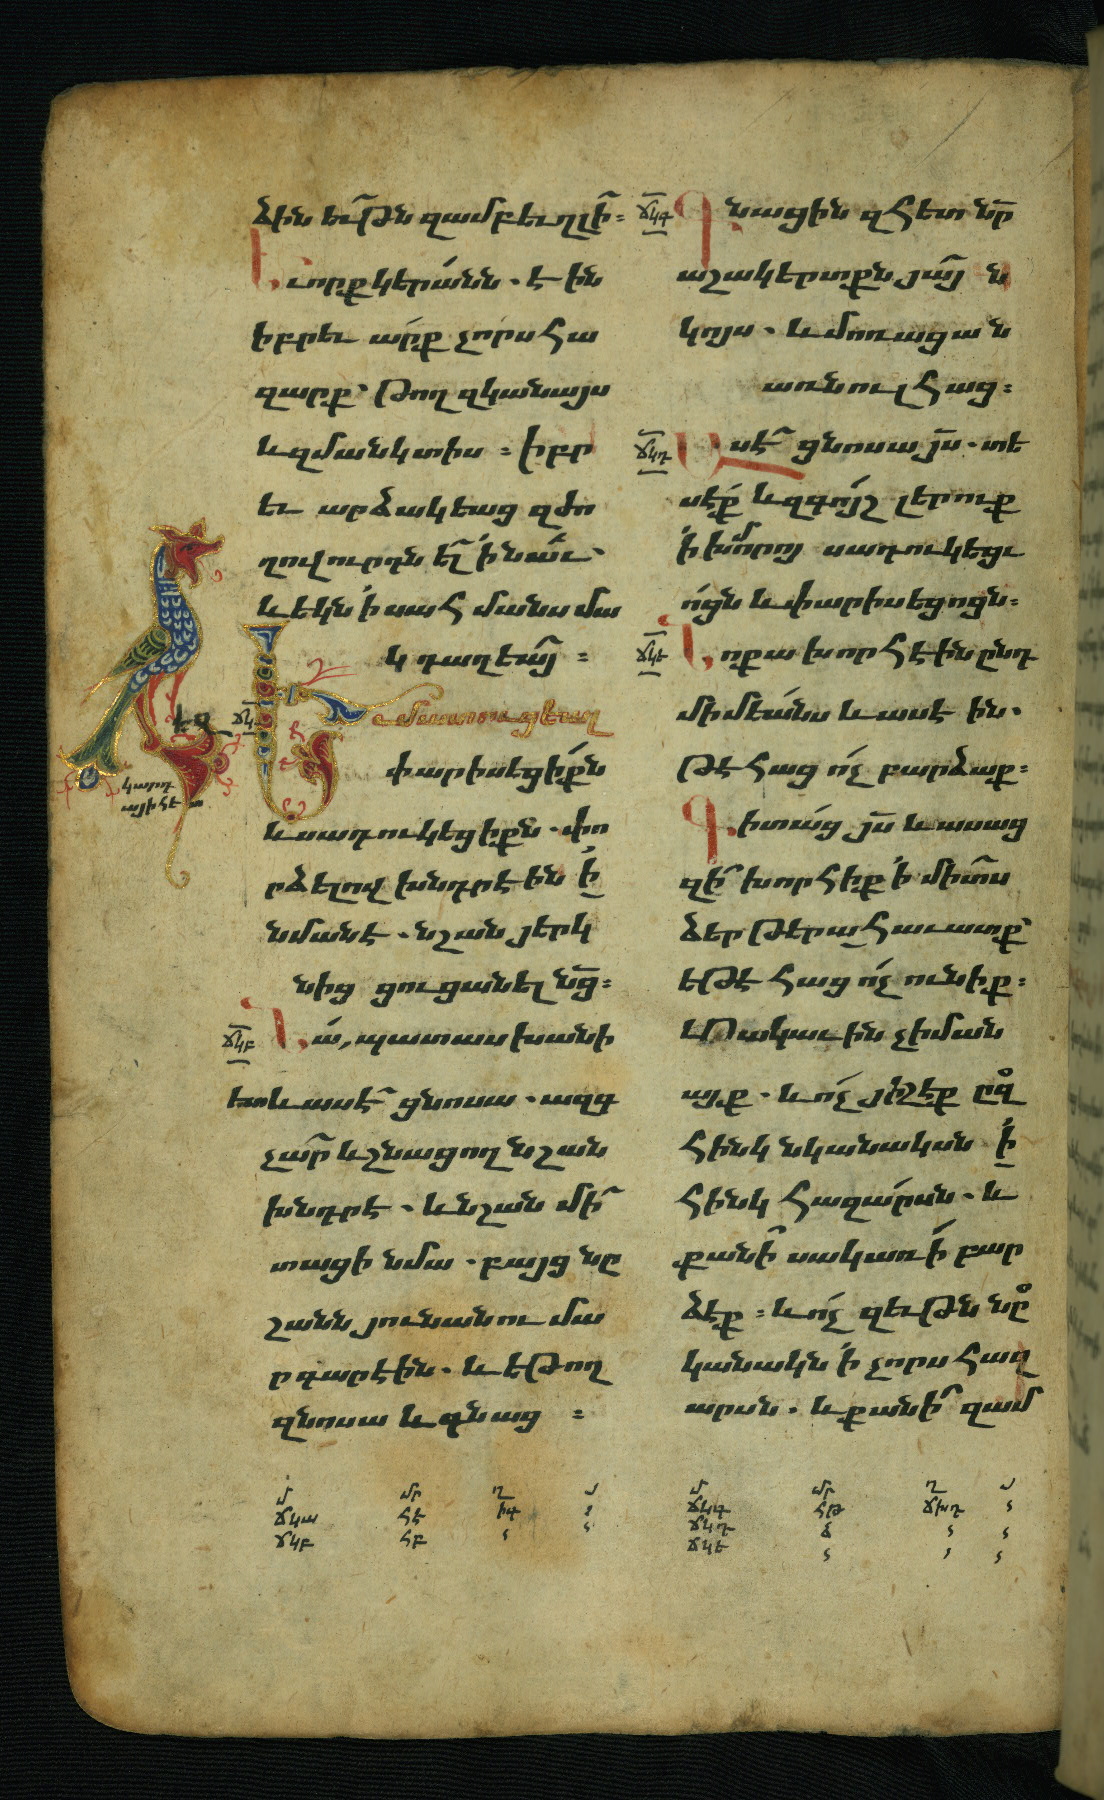 ձին եւ՟թն զամբեւղլի՟։
Եւ որք կերանն. էին
իբրեւ արք չորս հա
զարք՝ թող զկանայս
և զմանկտիս։ Իբր
եւ արձակեաց զժո
ղովուրդն ել՟ ի նաւ՝
և եկն ի սահմանս մա
կդաղեայ՟։
Եւ մատուցեալ
փարիսեցիքն
և սադուկեցիքն. փո
րձելով խնդրէին ի
նմանէ. նշան յերկ
նից ցուցանել նց՟։
Եւ նա, պատասխանի
ետ և ասէ՟ ցնոսա. ազգ
չար՟ և շնացող նշան
խնդրէ. և նշան մի՟
տացի նմա. բայց նը
շանն յունանու մա
րգարէին. և եթող
զնոսա և գնաց։
ՃԿԳ
Գնացին զհետ նր՟
աշակերտքն յայ՟ն
կոյս. և մոռացան
առնուլ հաց։
ՃԿԴ
Ասէ՟ ցնոսա յս՟. տե
սէք և զգոյշ լերուք
ի խմորոյ սադուկեցւ
ոցն և փարիսեցոցն։
ՃԿԵ
Նոքա խորհէին ընդ
միմեանս և ասէին.
թէ հաց ոչ բարձաք։
Գիտաց յս՟ և ասաց
զի՟ խորհիք ի միտ՟ս
ձեր թերահաւատք՝
եթէ հաց ոչ ունիք։
Եւ տակաւին չիման
այք. և ոչ յիշէք ըզ
հինկ նկանակսն ի
հինկ հազարսն. և
քանի՟ սակառի բար
ձէք։ և ոչ զեւթն նը
կանակն ի չորս հազ
արսն. և քանի՟ զամ
ՃԿԱ
ՃԿԲ
եզ
կարդ
այի հետ
մ մր ղ յ
ՃԿԱ ՀԷ ԻԳ
ՃԿԲ ՀԲ
մ մր ղ յ
ՃԿԳ ՀԹ ՃԽԴ
ՃԿԴ Ձ
ՃԿԵ